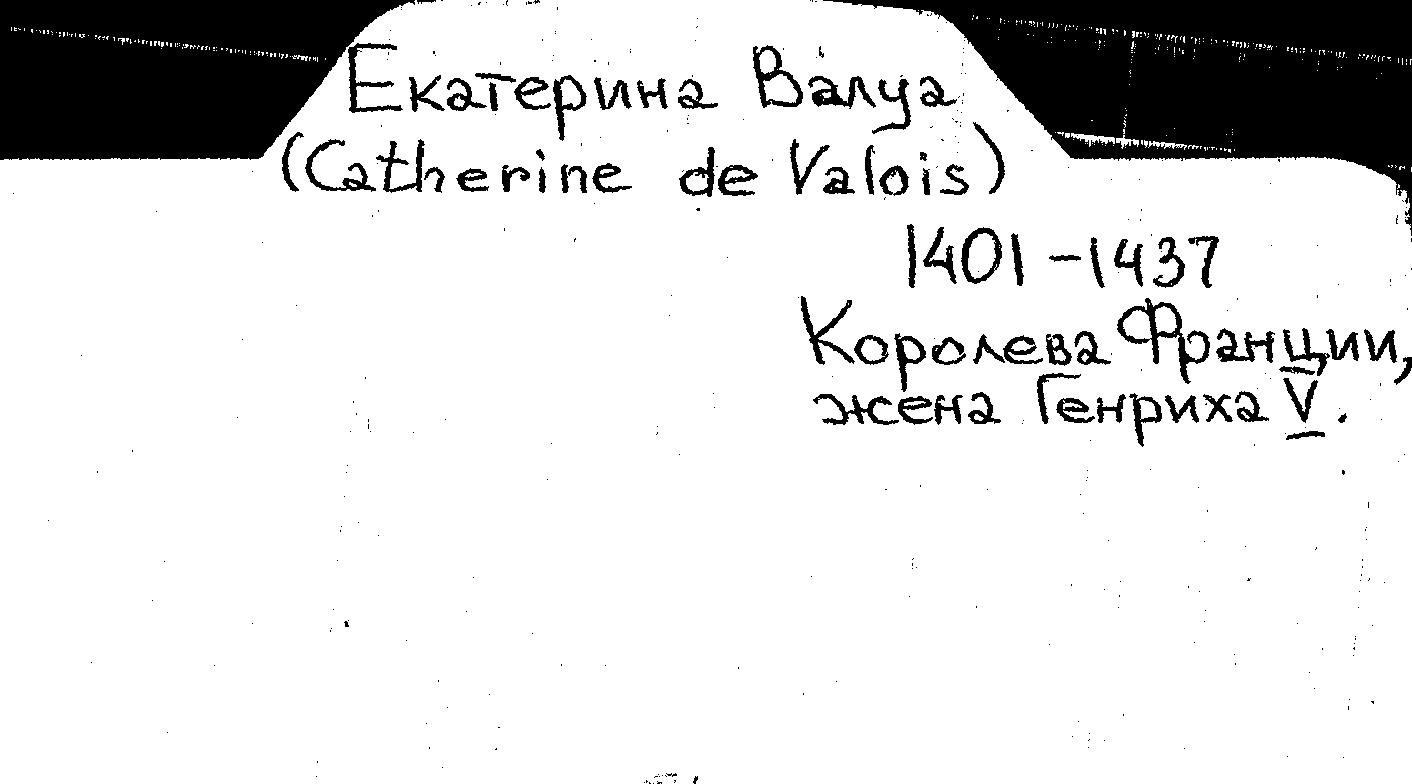 Екатерина Валуа
(Catherine de Valois)
1401-1437
Королева Франции,
жена Генриха V.